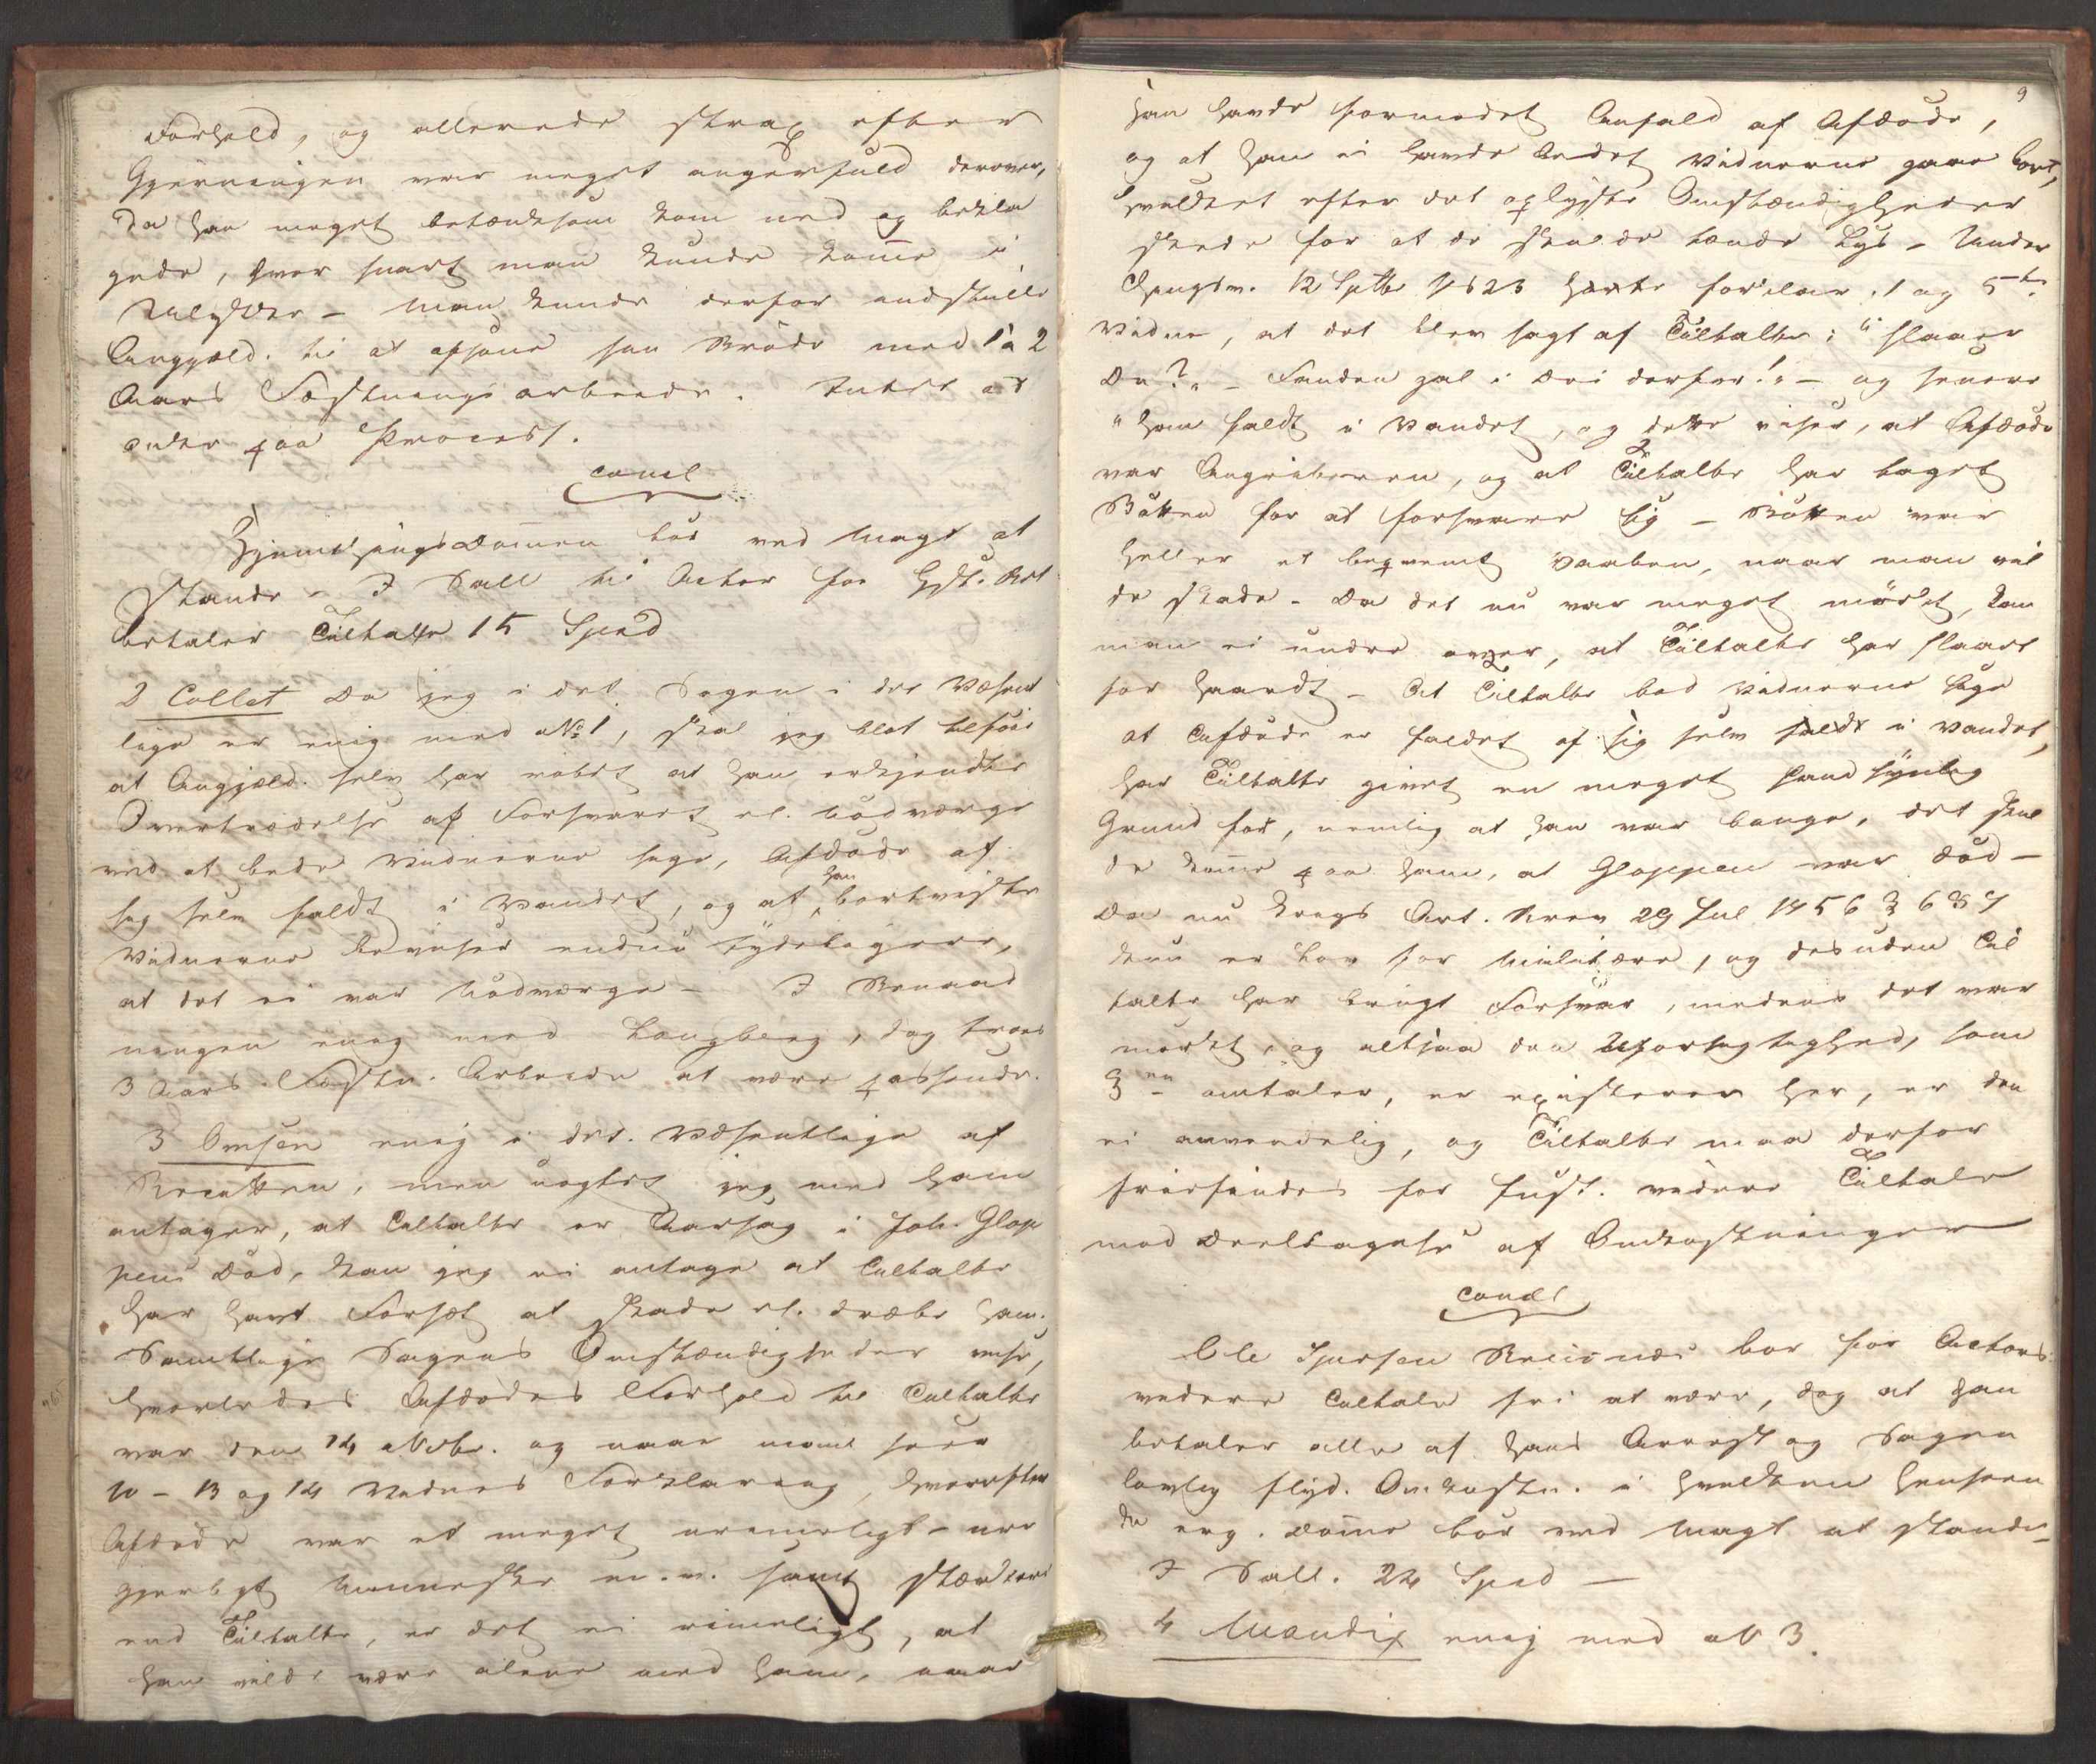 Forhold, og allerede strax efter
Gjerningen var meget angerfuld derover,
da han meget betænksom kom ned og bekla
gede, hvor snart man kunde komme i
Ulykke – Man kunde derfor indstille
Angjæld. til at afsone sin Brøde med 1 à 2
Aars Fæstningsarbeide. Intet at
anke paa Processen.
concl
Hjemthingsdommen bør ved Magt at
stande – I Sall til Actor for Høst. Ret
betaler Tiltalte 15 Spd
2 Collet Da jeg i det Sagen i det Væsent
lige er enig med No 1, skal jeg blot tilføie
at Angjæld. selv har viist at han erkjendte
Overtrædelse af Forsvaret el. Nødværge
ved at bede Vidnerne sige, Afdøde af
sig selv faldt i Vandet, og at han bortviste
Vidnerne beviser endnu tydeligere,
at det ei var Nødværge – I Benæv
ningen enig med Langberg, dog troes
3 Aars Fæstn. Arbeide at være passende.
3 Omsen enig i det Væsentlige af
Præmissen, men uagtet jeg med ham
antager, at Tiltalte er Aarsag i Joh. Glop
pens Død, kan jeg ei antage at Tiltalte
har havt Forsæt at skade el. dræbe ham.
Samtlige Sagens Omstændigheder vise,
hvorledes Afdødes Forhold til Tiltalte
var den 14 Novbr. og naar man seer
10 – 13 og 14 Vidnes Forklaring, hvorefter
Afdøde var et meget urimeligt – ure
gjerligt Menneske m. v. samt stærkere
end Tiltalte, er det ei rimeligt, at
han vilde være alene med ham, naar
9
han havde formodet Anfald af Afdøde,
og at han ei havde bedet Vidnerne gaae bort,
hvilket efter det oplyste Omstændigheder
skede for at de skulde tænde Lys – Under
Thingsv. 12 Septbr 1823 have forklar. 1 og 5te
Vidne, at det blev sagt af Tiltalte: "slaaer
Du?" – Fanden gal i Dei derfor!" – og senere
"han faldt i Vandet, og dette viser, at Afdøde
var Angriberen, og at Tiltalte har taget
Bøtten for at forsvare sig – Bøtten var
heller et beqvemt Vaaben, naar man vil
de skade – Da det nu var meget mørkt, kan
man ei undre over, at Tiltalte har slaaet
for haardt – At Tiltalte bad Vidnerne sige
at Afdøde er faldet af sig selv faldt i Vandet,
har Tiltalte givet en meget sandsynlig
Grund for, nemlig at han var bange, det skul
de komme paa ham, at Gloppen var død –
Da nu Krigs Art. Brev 29 Jul 1756 § 637
kun er Lov for Militære, og desuden Til
talte har brugt Forsvar, medens det var
mørkt, og altsaa den Uforsigtighed, som
§en omtaler, ei existerer her, er den
ei anvendelig, og Tiltalte maa derfor
frifindes for Just. videre Tiltale
mod Deeltagelse af Omkostninger
concl
Ole Ipersen bør for Actors
videre Tiltale fri at være, dog at han
betaler alle af hans Arrest og Sagen
lovlig flyd. Omkostn. i hvilken Henseen
de eeg. Domme bør ved Magt at stande –
I Sall. 24 Spd –
4 Mandix enig med No 3.